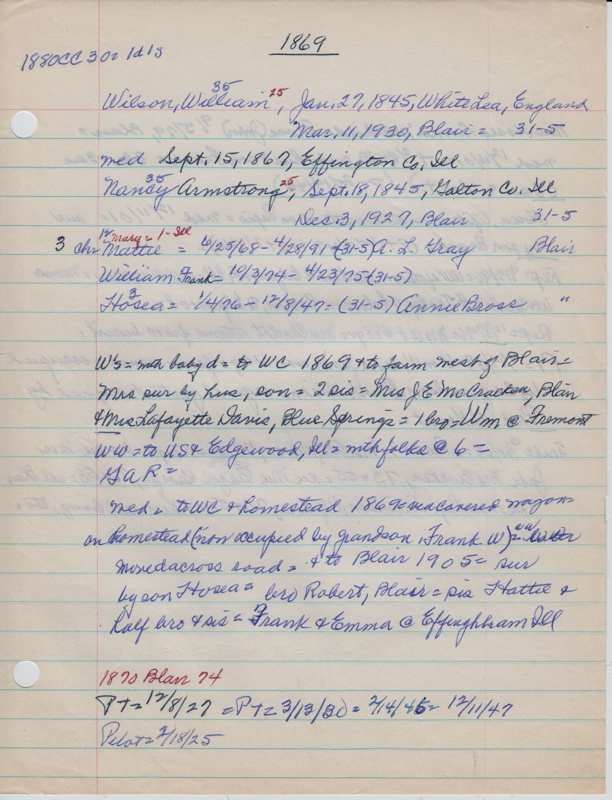 1869
1880CC 302 1d 1s
Wilson, William 35 25, Jan. 27, 1845, White Lea, England
Mar. 11, 1930, Blair = 31-5
med Sept. 15, 1867, Effington Co. Ill
Nancy 35 Armstrong 25, Sept. 18, 1845, Galton Co. Ill
Dec. 3, 1927, Blair 31-5
12 Mary = 1 - Ill
3 chr Mattie = 6/25/68 - 4/28/91 - (31-5) A. L. Gray Blair
William Frank = 10/3/74 - 4/23/75 - (31-5)
Hosea 3 = 1/4/76 - 12/8/47 = (31-5) Annie Bross "
W's = mth baby d = to WC 1869 & to farm west of Blair =
Mrs sur by hus, son = 2 sis = Mrs J E McCracken, Blair
& Mrs Lafayette Davis, Blue Springs = 1 bro = Wm @ Fremont
WW = to US & Edgewood, Ill = mth folks @ 6 =
GAR =
med = to WC & homestead 1869 = covered wagon =
on homestead (now occupied by grandson, Frank W) = WW
moved across road = & to Blair 1905 = sur
by son Hosea = bro Robert, Blair = sis Hattie &
half bro & sis = Frank & Emma @ Effinghbram Ill
1870 Blair 74
PT = 12/8/27 = PT = 3/13/30 = 2/14/46 = 12/11/47
Pilot = 2/18/25